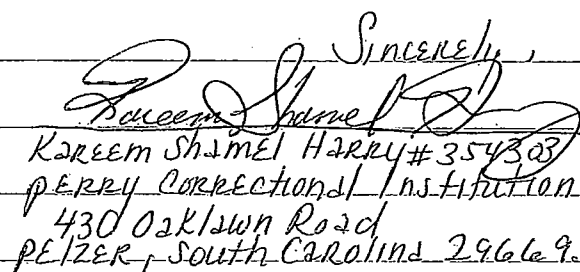 Sincerely,
Kareem Shamel Harry
Kareem Shamel Harry #354303
Perry Correctional Institution
430 Oaklawn Road
Pelzer, South Carolina 29669.